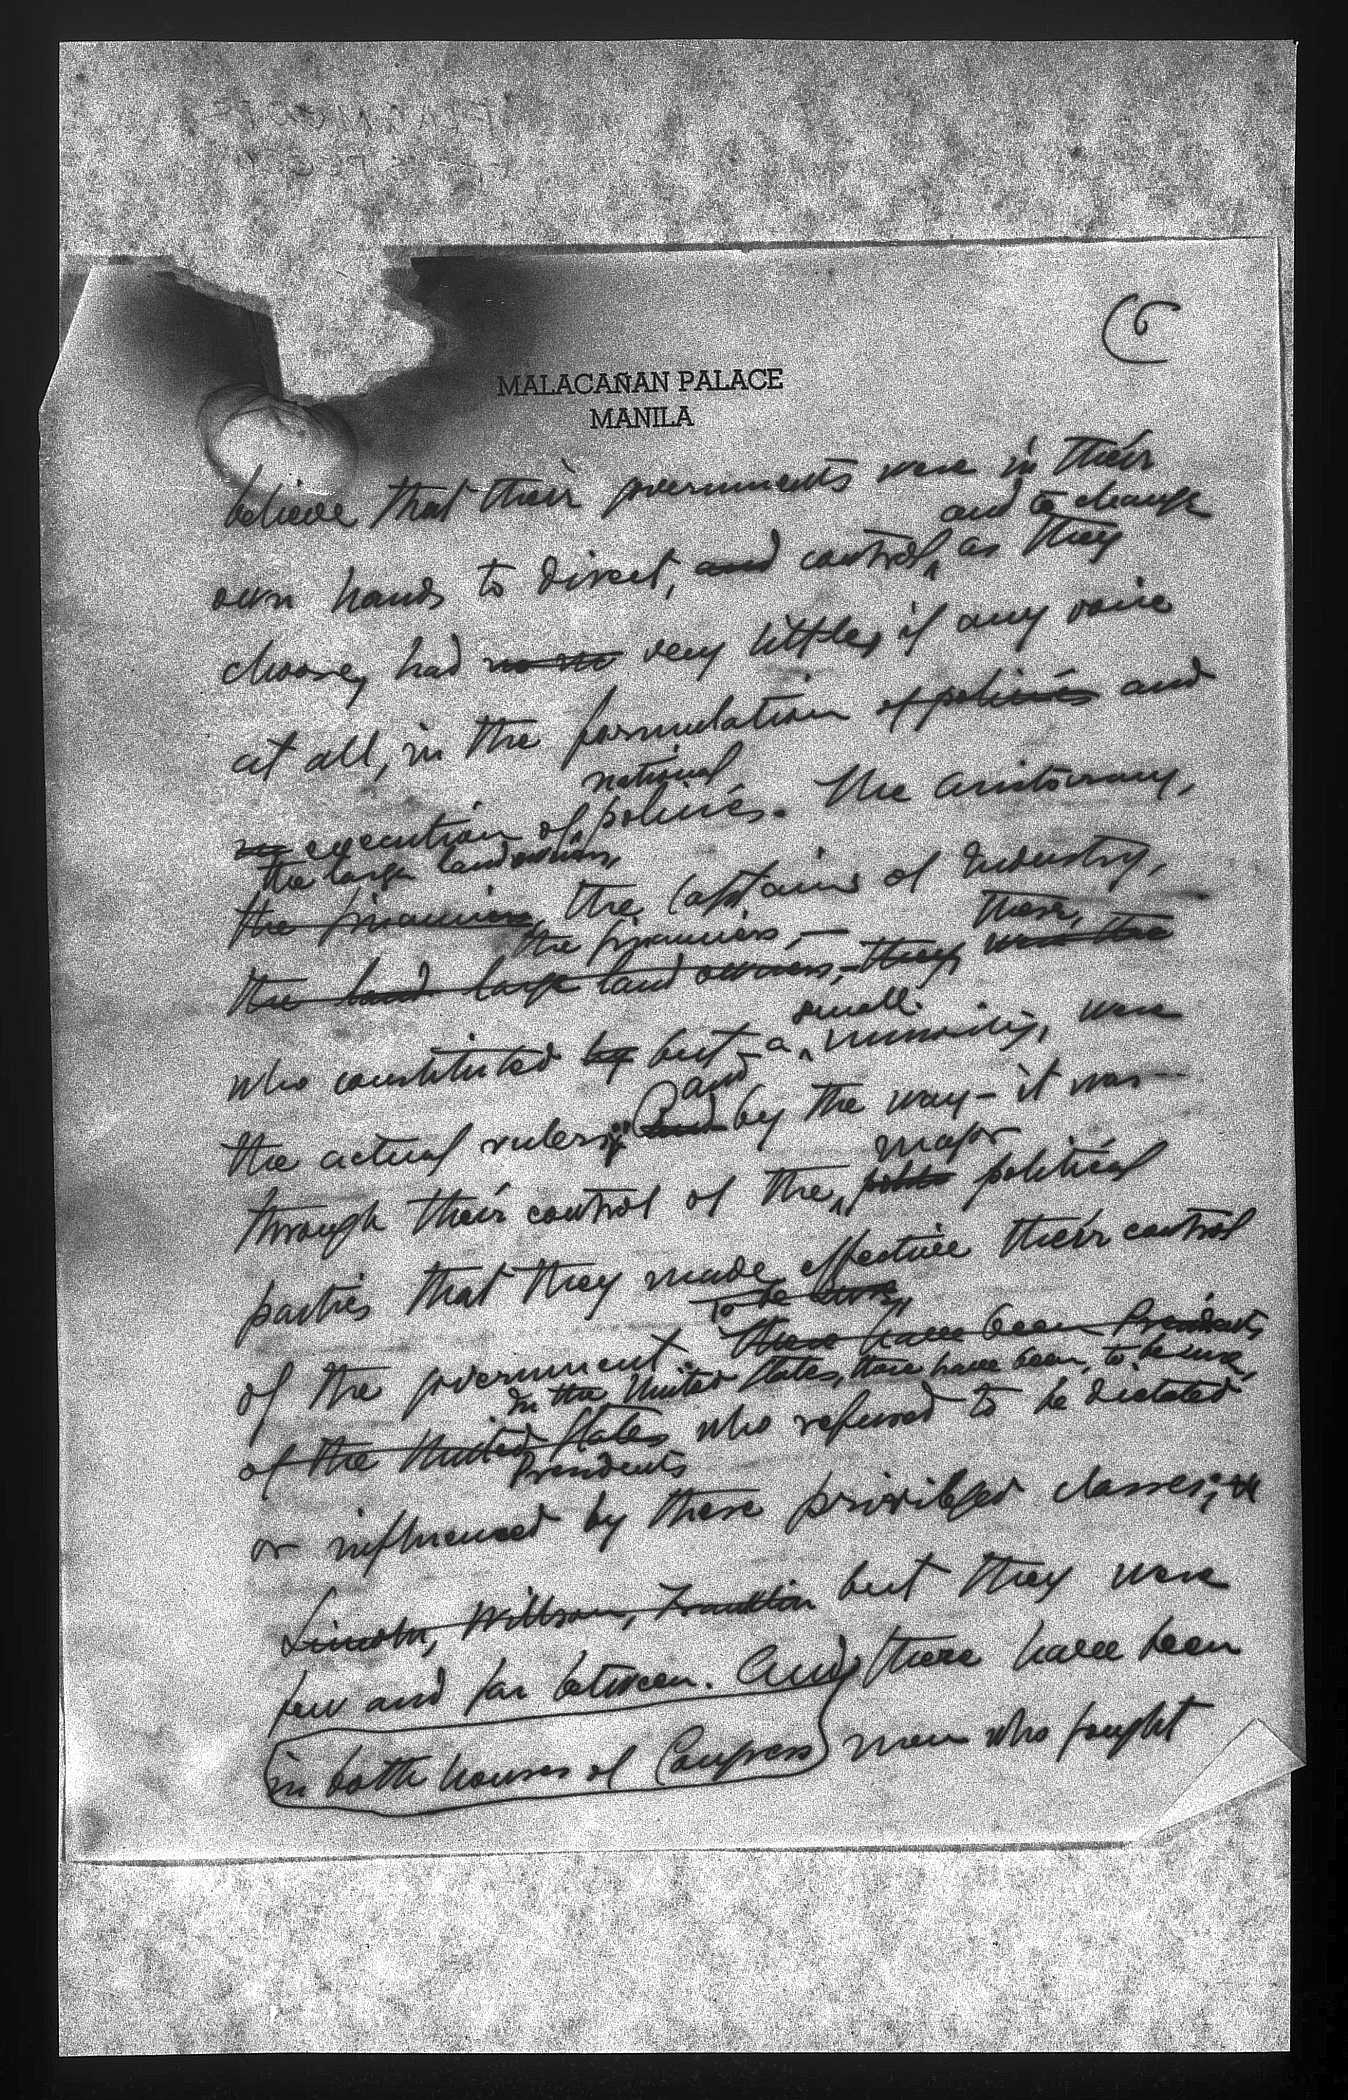 6
MALACAÑAN PALACE
MANILA
believe that their governments were in their
and to change
own hands to direct, and control, as they
choose, had very little, if any voice
at all, in the formulation of policies and
national
execution of policies. The aristocracy,
the large landowners,
the financiers, the Captains of Industry,
the financiers, — these,
the land large land owners, – they were the
small
who constituted but a minority, were
and
the actual rulers; (and by the way – it was
major
through their control of the political
parties that they made effective their control
To be sure,
of the government. there have been Presidents
In the United States, there have been, to be sure,
of the United States who refused to be dictated
Presidents
or influenced by these privileged classes;
Lincoln, Willson, Franklin but they were
few and far between. And, there have been
in both houses of Congress men who fought